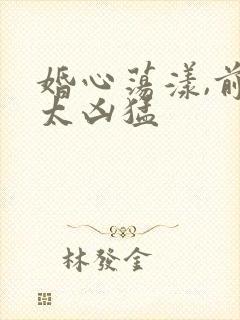 婚心荡漾,前
太凶猛
林發金